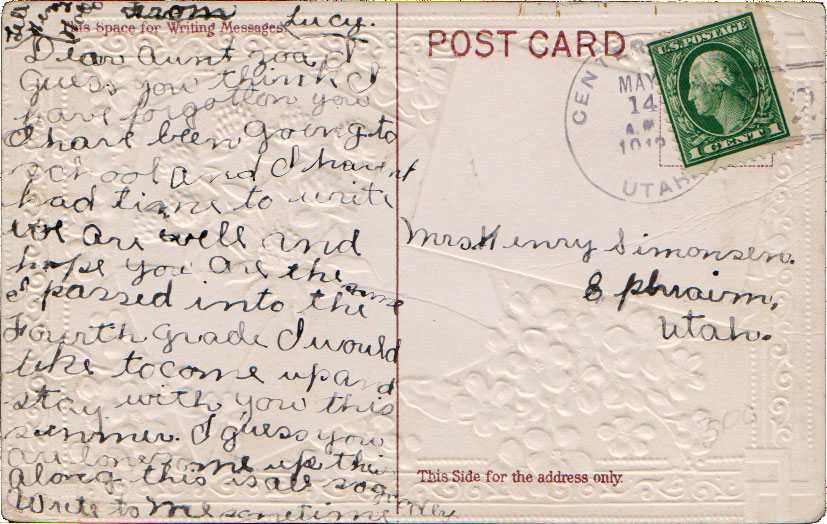 from Lucy.
This Space for Writing Messages
Dear aunt Zoa, I
guess you think I
have forgotton you
I have been going to
school and I havent
had time to write
we are well and
hope you are the same
I passed into the
Fourth grade I would
like to come up and
stay with you this
summer. I guess you
are lonesome up their
along this is all so
Write to me sometime
POST CARD
CENTER
MAY
14
A.M.
191
UTAH
U.S. POSTAGE
1 CENT 1
Mrs Henry Simonsen.
Ephraim,
Utah.
300
This Side for the address only.